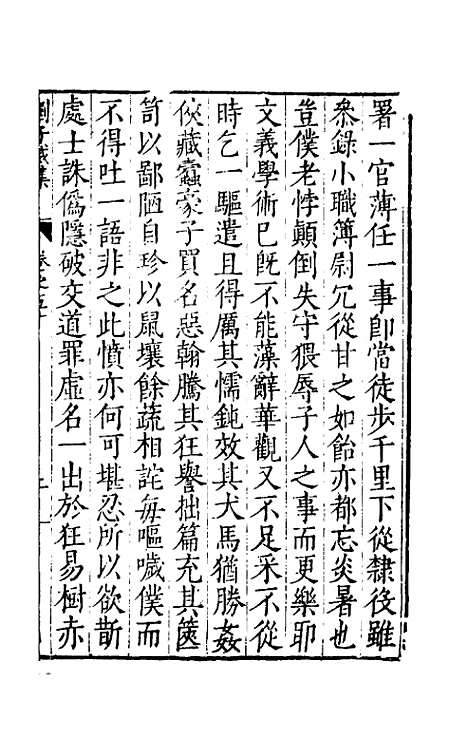 署一官薄任一事即當徒步千里下從隸役雖
叅錄小職簿尉冗從甘之如飴亦都忘炎暑也
豈僕老悖顛倒失守猥辱子人之事而更樂耶
文義學術已旣不能藻辭華觀又不足采不從
時乞一驅遣且得厲其懦鈍效其犬馬猶勝姦
俠藏蠹豪子買名惡翰騰其狂譽拙篇充其篋
笥以鄙陋自珍以鼠壤餘蔬相詫每嘔噦僕而
不得吐一語非之此憤亦何可堪忍所以欲斮
處士誅僞隱破交道罪虛名一出於狂易樹赤
子威集 卷之五